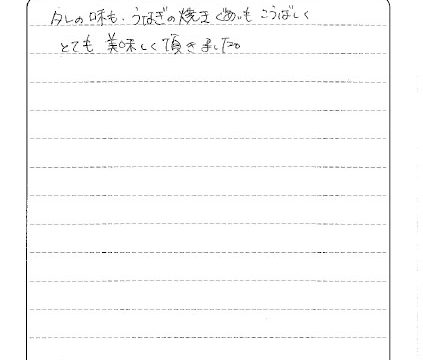 タレの味も、うなぎの焼きぐあいもこうばしく
とても美味しく頂きました。